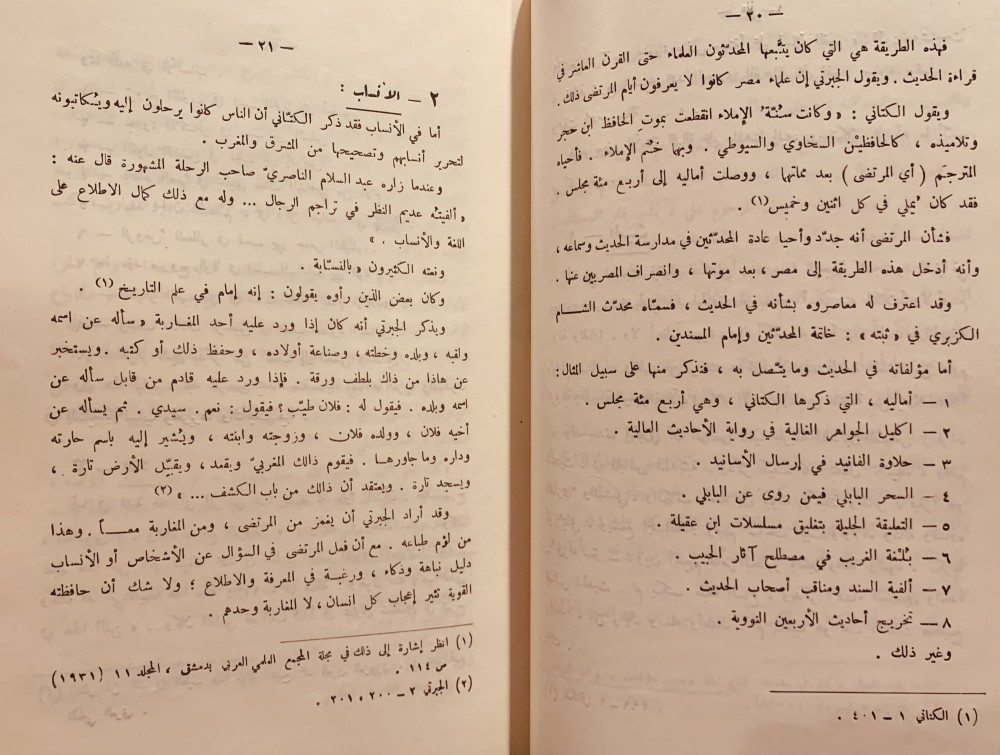 — ٢٠ —
فهذه الطريقة هي التي كان يتَّبعها المحدّثون العلماء حتى القرن العاشر في
قراءة الحديث . ويقول الجبرتي إن علماء مصر كانوا لا يعرفون أيام المرتضى ذلك .
ويقول الكتاني : «وكانت سُنّتة الإملاء انقطعت بموتِ الحافظ ابن حجر
وتلاميذه ، كالحافظيْن السخاوي والسيوطي . وبها خُتم الإملاء . فأحياه
المترجَم ( أي المرتضى ) بعد مماتها ، ووصلت أماليه إلى أربع مئة مجلس .
فقد كان يُملي في كل اثنين وخميس(١) .
فشأن المرتضى أنه جدّد وأحيا عادة المحدّثين في مدارسة الحديث وسماعه ،
وأنه أدخل هذه الطريقة إلى مصر ، بعد موتها ، وانصراف المصريين عنها .
وقد اعترف له معاصروه بشأنه في الحديث ، فسمّاه محدّث الشام
الكزبري في «ثبته» : خاتمة المحدّثين وإمام المسندين .
أما مؤلفاته في الحديث وما يتّصل به ، فنذكر منها على سبيل المثال :
١ — أماليه ، التي ذكرها الكتاني ، وهي أربع مئة مجلس .
٢ — اكليل الجواهر الغالية في رواية الأحاديث العالية .
٣ — حلاوة الفانيد في إرسال الأسانيد .
٤ — السحر البابلي فيمن روى عن البابلي .
٥ — التعليقة الجليلة بتغليق مسلسلات ابن عقيلة .
٦ — بُلغة الغريب في مصطلح آثار الحبيب .
٧ — ألفية السند ومناقب أصحاب الحديث .
٨ — تخريج أحاديث الأربعين النووية .
وغير ذلك .
(١) الكتاني ١ — ٤٠١ .
— ٢١ —
٢ — الأنساب :
أما في الأنساب فقد ذكر الكتاني أن الناس كانوا يرحلون إليه ويُكاتبونه
لتحرير أنسابهم وتصحيحها من المشرق والمغرب .
وعندما زاره عبد السلام الناصريّ صاحب الرحلة المشهورة قال عنه :
«ألفيتُه عديم النظر في تراجم الرجال ... وله مع ذلك كمال الاطلاع على
اللغة والأنساب . »
ونعته الكثيرون «بالنسّابة .
وكان بعض الذين رأوه يقولون : إنه إمام في علم التاريخ (١) .
ويذكر الجبرتي أنه كان إذا ورد عليه أحد المغاربة «سأله عن اسمه
ولقبه ، وبلده وخطته ، وصناعة أولاده ، وحفظ ذلك أو كتبه . ويستخبر
عن هاذا من ذاك بلطف ورقة . فإذا ورد عليه قادم من قابل سأله عن
اسمه وبلده . فيقول له : فلان طيّب ؟ فيقول : نعم . سيدي . ثم يسأله عن
أخيه فلان ، وولده فلان ، وزوجته وابنته ، ويُشير إليه باسم حارته
وداره وما جاورها . فيقوم ذالك المغربيّ ويقعد ، ويقبّل الأرض تارة ،
ويسجد تارة . ويعتقد أن ذالك من باب الكشف ... » (٢)
وقد أراد الجبرتي أن يغمز من المرتضى ، ومن المغاربة معاً . وهذا
من لؤم طباعه . مع أن فعل المرتضى في السؤال عن الأشخاص أو الأنساب
دليل نباهة وذكاء ، ورغبة في المعرفة والاطلاع ؛ ولا شك أن حافظته
القوية تثير إعجاب كل انسان ، لا المغاربة وحدهم .
(١) انظر إشارة إلى ذلك في مجلة المجمع العلمي العربي بدمشق ، المجلد ١١ (١٩٣١)
ص ١١٤ .
(٢) الجبرتي ٢ — ٢٠٠ ، ٢٠١ .